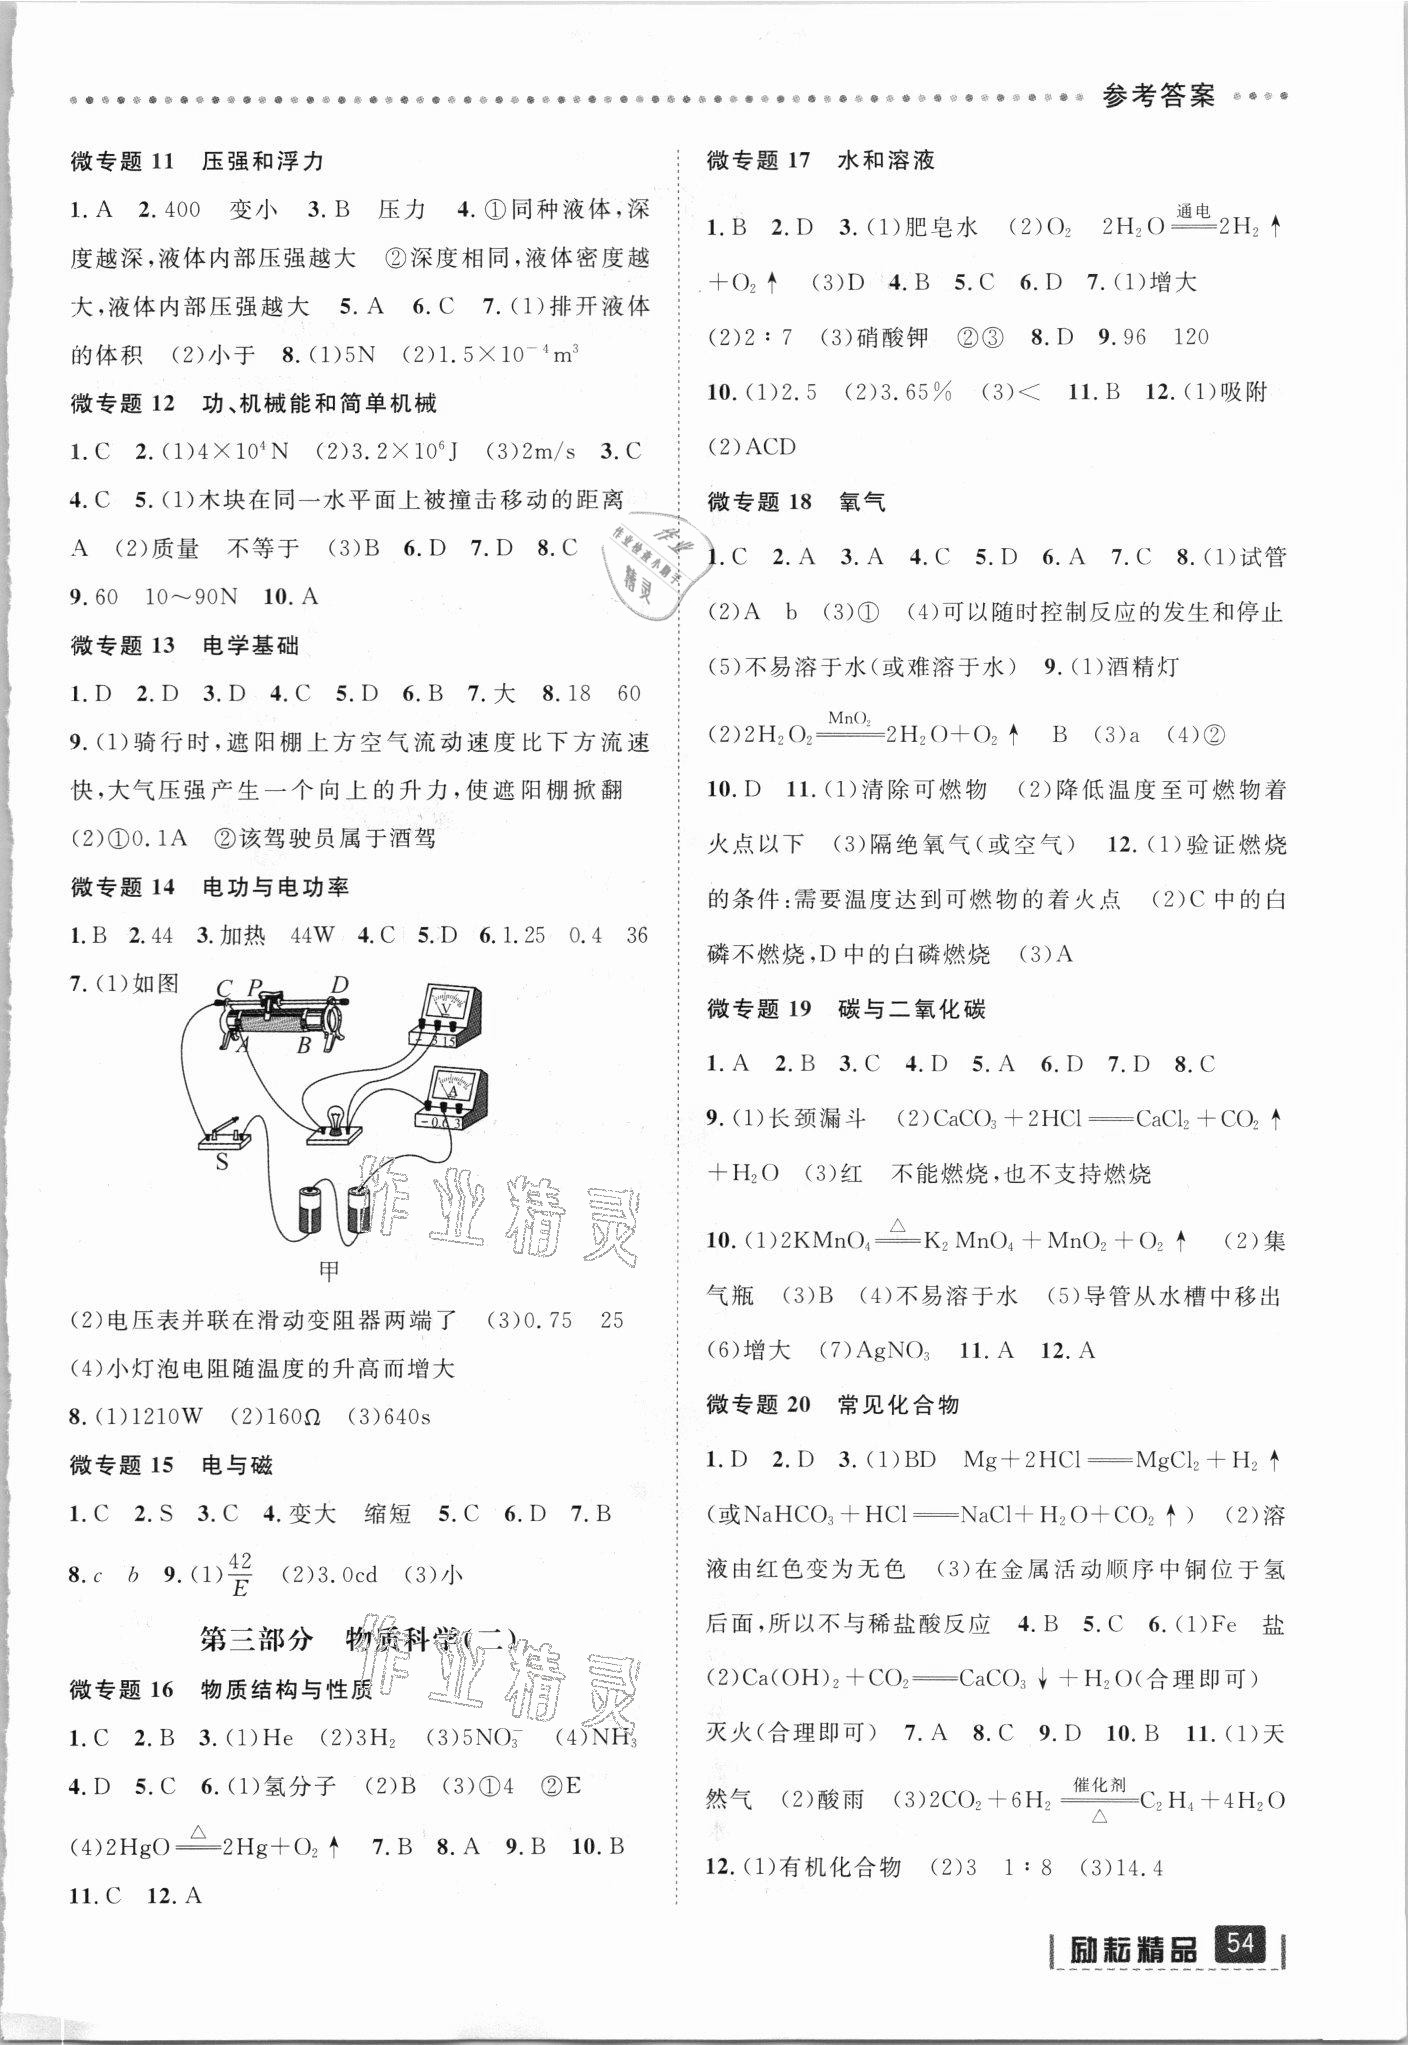 参考答案
微专题 11 压强和浮力
1.A 2.400 变小 3.B 压力 4.①同种液体,深
度越深,液体内部压强越大 ②深度相同,液体密度越
大,液体内部压强越大 5.A 6.C 7.(1)排开液体
的体积 (2)小于 8.(1)5N (2)1.5×10⁻⁴m³
微专题 12 功、机械能和简单机械
1.C 2.(1)4×10⁴N (2)3.2×10⁶J (3)2m/s 3.C
4.C 5.(1)木块在同一水平面上被撞击移动的距离
A (2)质量 不等于 (3)B 6.D 7.D 8.C
9.60 10～90N 10.A
微专题 13 电学基础
1.D 2.D 3.D 4.C 5.D 6.B 7.大 8.18 60
9.(1)骑行时,遮阳棚上方空气流动速度比下方流速
快,大气压强产生一个向上的升力,使遮阳棚掀翻
(2)①0.1A ②该驾驶员属于酒驾
微专题 14 电功与电功率
1.B 2.44 3.加热 44W 4.C 5.D 6.1.25 0.4 36
7.(1)如图
C P D
A B
V
- 3 15
A
-0.6 3
S
甲
(2)电压表并联在滑动变阻器两端了 (3)0.75 25
(4)小灯泡电阻随温度的升高而增大
8.(1)1210W (2)160Ω (3)640s
微专题 15 电与磁
1.C 2.S 3.C 4.变大 缩短 5.C 6.D 7.B
8.c b 9.(1)42/E (2)3.0cd (3)小
第三部分 物质科学(二)
微专题 16 物质结构与性质
1.C 2.B 3.(1)He (2)3H₂ (3)5NO₃⁻ (4)NH₃
4.D 5.C 6.(1)氢分子 (2)B (3)①4 ②E
(4)2HgO══△══2Hg+O₂↑ 7.B 8.A 9.B 10.B
11.C 12.A
微专题 17 水和溶液
1.B 2.D 3.(1)肥皂水 (2)O₂ 2H₂O══通电══2H₂↑
+O₂↑ (3)D 4.B 5.C 6.D 7.(1)增大
(2)2∶7 (3)硝酸钾 ②③ 8.D 9.96 120
10.(1)2.5 (2)3.65% (3)< 11.B 12.(1)吸附
(2)ACD
微专题 18 氧气
1.C 2.A 3.A 4.C 5.D 6.A 7.C 8.(1)试管
(2)A b (3)① (4)可以随时控制反应的发生和停止
(5)不易溶于水(或难溶于水) 9.(1)酒精灯
(2)2H₂O₂══MnO₂══2H₂O+O₂↑ B (3)a (4)②
10.D 11.(1)清除可燃物 (2)降低温度至可燃物着
火点以下 (3)隔绝氧气(或空气) 12.(1)验证燃烧
的条件:需要温度达到可燃物的着火点 (2)C中的白
磷不燃烧,D中的白磷燃烧 (3)A
微专题 19 碳与二氧化碳
1.A 2.B 3.C 4.D 5.A 6.D 7.D 8.C
9.(1)长颈漏斗 (2)CaCO₃+2HCl══CaCl₂+CO₂↑
+H₂O (3)红 不能燃烧,也不支持燃烧
10.(1)2KMnO₄══△══K₂MnO₄+MnO₂+O₂↑ (2)集
气瓶 (3)B (4)不易溶于水 (5)导管从水槽中移出
(6)增大 (7)AgNO₃ 11.A 12.A
微专题 20 常见化合物
1.D 2.D 3.(1)BD Mg+2HCl══MgCl₂+H₂↑
(或NaHCO₃+HCl══NaCl+H₂O+CO₂↑) (2)溶
液由红色变为无色 (3)在金属活动顺序中铜位于氢
后面,所以不与稀盐酸反应 4.B 5.C 6.(1)Fe 盐
(2)Ca(OH)₂+CO₂══CaCO₃↓+H₂O(合理即可)
灭火(合理即可) 7.A 8.C 9.D 10.B 11.(1)天
然气 (2)酸雨 (3)2CO₂+6H₂══催化剂/△══C₂H₄+4H₂O
12.(1)有机化合物 (2)3 1∶8 (3)14.4
励耘精品 54
作业
作业检查小助手
精灵
作业精灵
作业精灵